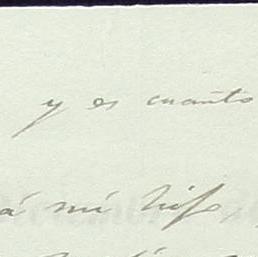 y es cuanto
á mi hijo,